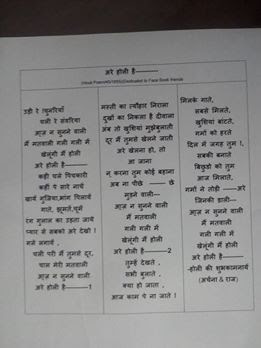 अरे होली है————
(Vocal Poem#9/1955)(Dedicated to Face Book friends
उडी रे चुनरियाँ
चली रे संवरिया
आज न सुनने वाली
मैं मतवाली गली गली में
खेलूंगी मैं होली
अरे होली है———
कही चले पिचकारी
कहीं पे सारे नाचे
खायें गुजिया,भांग पिलायें
गाते, झूमते,घूमें
रंग गुलाल का उड़ना जाये
प्यार से सबको अरे देखो !
गले लगायें ,
चली परी मैं तुमसे दूर,
चाल मेरी मतवाली
आज न सुनने वाली
अरे होली है———1
मस्ती का त्यौहार निराला
दुखों का निकला है दीवाला
अब तो खुशियां मुझेबुलाती
दूर मैं तुमसे खेलने जाती
अरे खेलना हो, तो
आ जाना
न् करना तुम कोई बहाना
अब ना पीछे —— छे
मुड़ने वाली—
आज न सुनने वाली
मैं मतवाली
गली गली में
खेलूंगी मैं होली
अरे होली है———2
तुम्हें देखते ,
सभी बुलाते ,
क्या हो जाता ,
आज काम पे ना जाते !
मिलके गाते,
सबसे मिलते,
खुशियां बांटते,
गमों को हरते
दिल में जगह तुम !,
सबकी बनाते
बिछुडों को तुम
आज मिलाते,
गमों ने तोड़ी ——अरे
जिनकी डाली—
आज न सुनने वाली
मैं मतवाली
गली गली में
खेलूंगी मैं होली
अरे होली है———
-होली की शुभकामनायें
(अर्चना & राज)